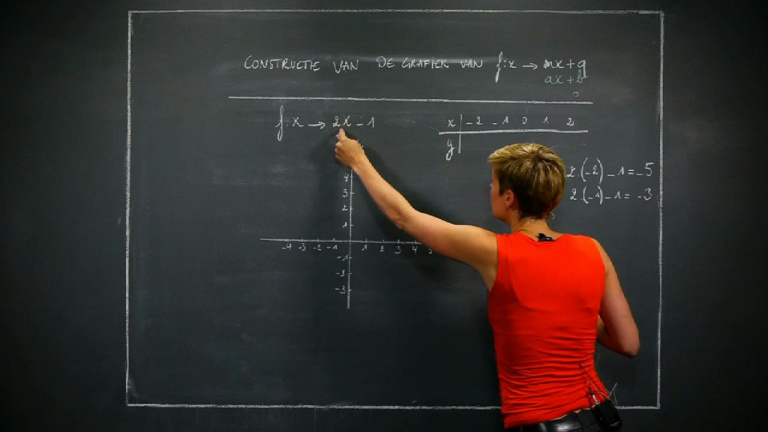 CONSTRUCTIE VAN DE GRAFIEK VAN f: x → mx + q
ax + b
f: x → 2x - 1
x -2 -1 0 1 2
y
2.(-2) - 1 = -5
2.(-1) - 1 = -3
4
3
2
1
-4 -3 -2 -1 1 2 3 4 5
-1
-2
-3